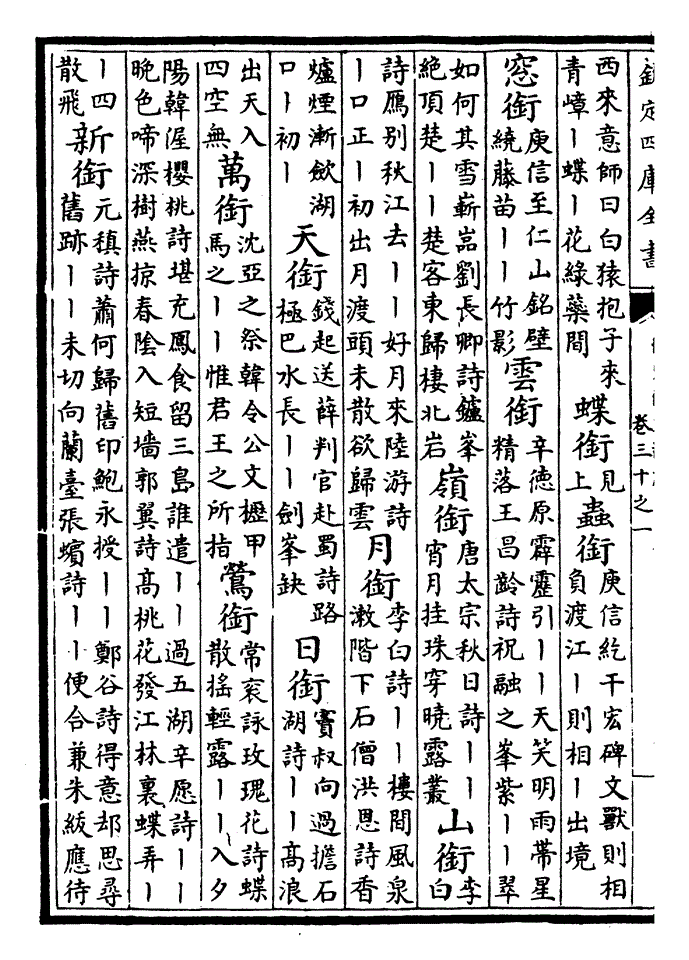 欽定四庫全書
卷三十之一
西來意師曰白猿抱子來
青嶂丨蝶丨花綠藥間
蝶銜
見
上
蟲銜
庾信紇干宏碑文獸則相
負渡江丨則相丨出境
窓銜
庾信至仁山銘壁
繞藤苗丨丨竹影
雲銜
辛德原霹靂引丨丨天笑明雨帶星
精落王昌齡詩祝融之峯紫丨丨翠
如何其雪嶄嵓劉長卿詩鑪峯
絶頂楚丨丨楚客東歸棲北岩
嶺銜
唐太宗秋日詩丨丨
宵月挂珠穿曉露叢
山銜
李
白
詩鴈別秋江去丨丨好月來陸游詩
丨口正丨初出月渡頭未散欲歸雲
月銜
李白詩丨丨樓間風泉
漱階下石僧洪恩詩香
爐煙漸飲湖
口丨初丨
天銜
錢起送薛判官赴蜀詩路
極巴水長丨丨劍峯缺
日銜
竇叔向過擔石
湖詩丨丨高浪
出天入
四空無
萬銜
沈亞之祭韓令公文櫪甲
馬之丨丨惟君王之所指
鶯銜
常衮詠玫瑰花詩蝶
散摇輕露丨丨入夕
陽韓渥櫻桃詩堪充鳳食留三島誰遣丨丨過五湖辛愿詩丨丨
晚色啼深樹燕掠春陰入短墻郭翼詩高桃花發江林裏蝶弄丨
丨四
散飛
新銜
元稹詩蕭何歸舊印鮑永授丨丨鄭谷詩得意却思尋
舊跡丨丨未切向蘭臺張蠙詩丨丨便合兼朱紱應待